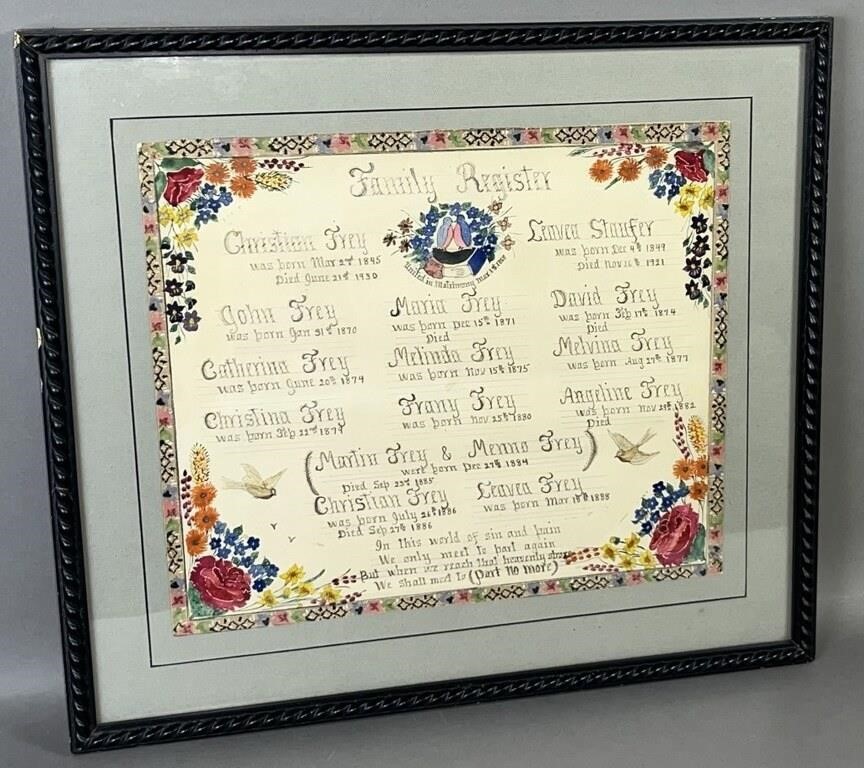 Family Register
Christian Frey
was born Mar 2nd 1845
Died June 21st 1930
United in Matrimony Mar
Leavea Staufer
was born Dec 4th 1849
Died Nov 1921
John Frey
was born Jan 31st 1870
Maria Frey
was born Dec 15th 1871
Died
David Frey
was born Feb 17th 1874
Died
Catherina Frey
was born June 20th 1874
Melinda Frey
was born Nov 15th 1875
Melvina Frey
was born Aug 27th 1877
Christina Frey
was born Feb 22nd 1879
Frany Frey
was born Nov 25th 1880
Angeline Frey
was born Nov 1882
Died
(Martin Frey & Menno Frey)
were born Dec 27th 1884
Died Sep 23rd 1885
Christian Frey
was born July 26th 1886
Died Sep 27th 1886
Leavea Frey
was born Mar 18th 1888
In this world of sin and pain
We only meet to part again
But when we reach that heavenly shore
We shall meet to (Part no more)